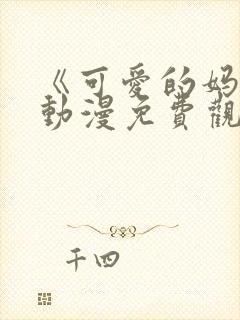 《可愛的妈
動漫免費觀
千四